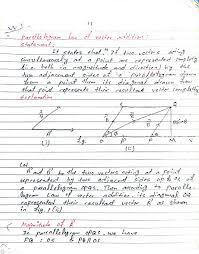 parallelogram law of vector addition:
Statement:
It states that "If two vectors acting
simultaneously at a point are represented completely
both in magnitude and direction by the
two adjacent sides of a parallelogram drawn
from a point then its diagonal drawn from
that point represents their resultant vector completely
Explanation
fig.
(c)
Let
and B be the two vectors acting at a point
represented by two adjacent sides OP & OS of
a parallelogram OPQS. Then according to parallelo-
gram law of vector addition, its diagonal OQ
represented their resultant vector R as shown
in fig. 1(c)
Magnitude of R
In parallelogram OPQS, we have
PQ = OS &